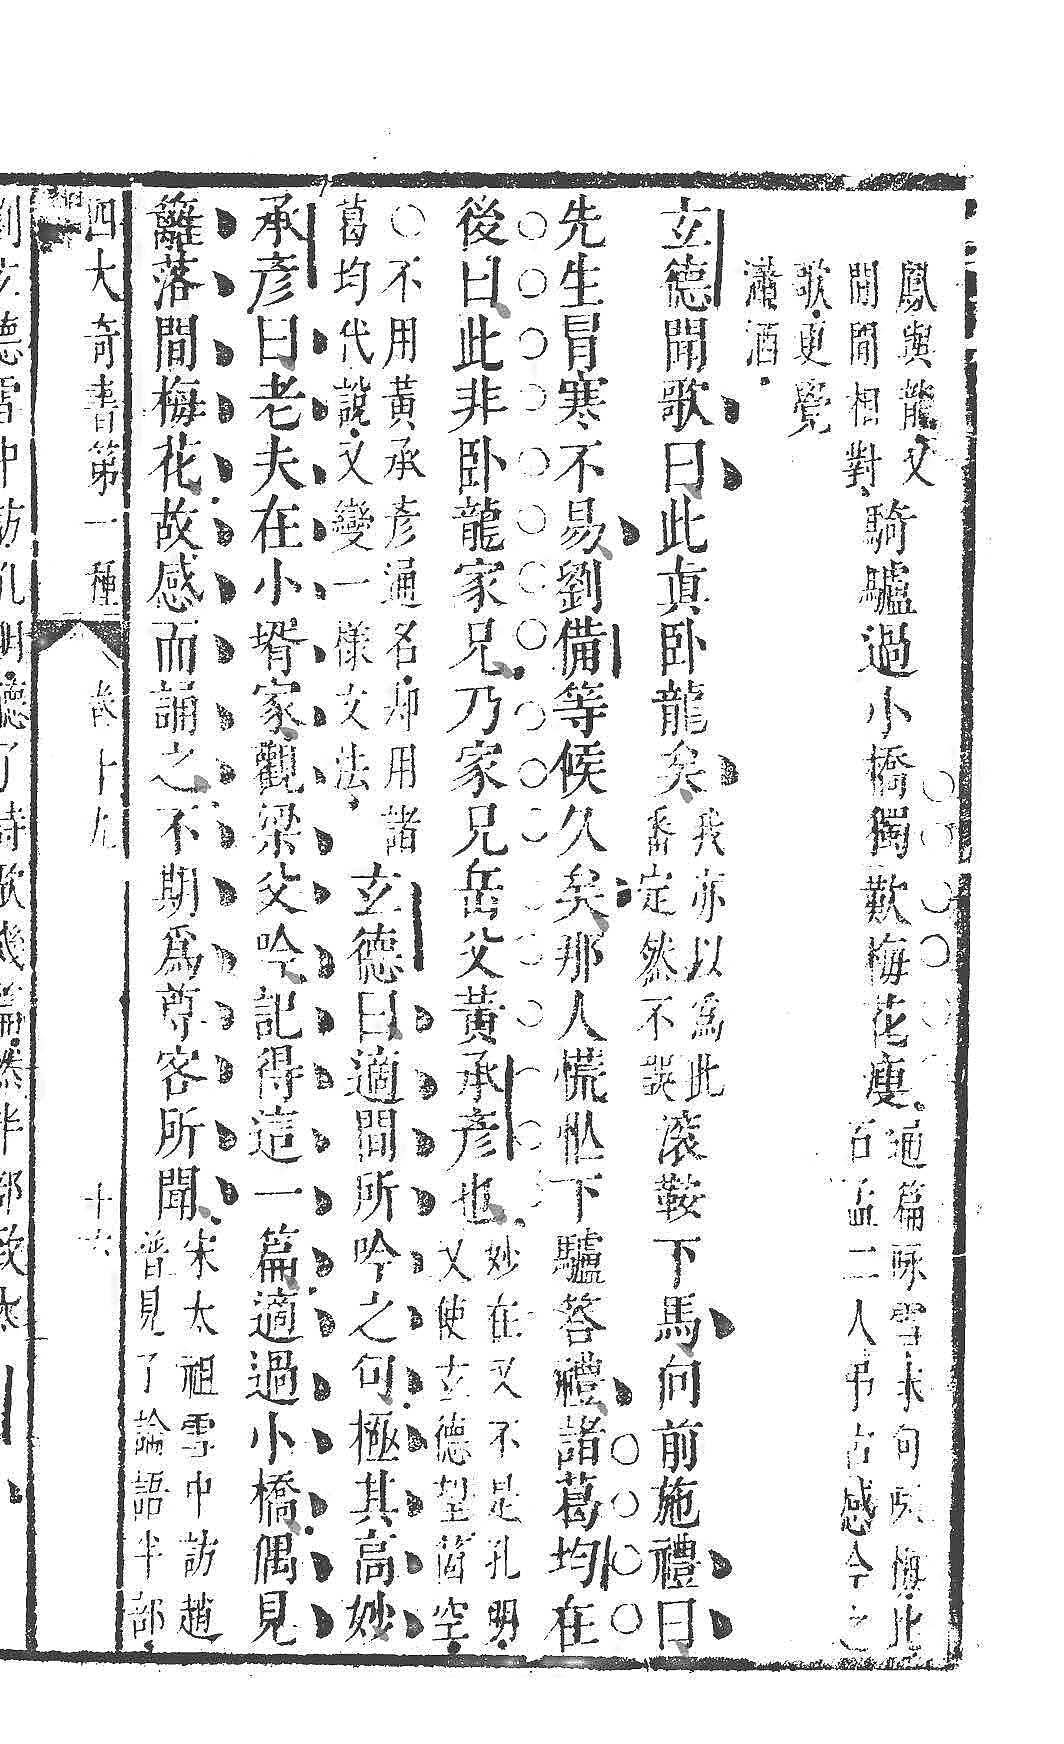 鳳與龍又
閒閒相對騎驢過小橋獨歎梅花瘦通篇咏雪末句咏梅此
石孟二人弔古感今之
歌更覺
瀟洒
玄德聞歌曰此真臥龍矣我亦以爲此
番定然不誤滾鞍下馬向前施禮曰
先生冒寒不易劉備等候久矣那人慌忙下驢答禮諸葛均在
後曰此非臥龍家兄乃家兄岳父黃承彥也妙在又不是孔明
又使玄德望箇空
〇不用黃承彥通名却用諸
葛均代說又變一樣文法玄德曰適間所吟之句極其高妙
承彥曰老夫在小壻家觀梁父吟記得這一篇適過小橋偶見
籬落間梅花故感而誦之不期爲尊客所聞宋太祖雪中訪趙
普見了論語半部
四大奇書第一種 卷十九 十六
劉玄德雪中訪孔明聽了詩歌幾篇然半部致太